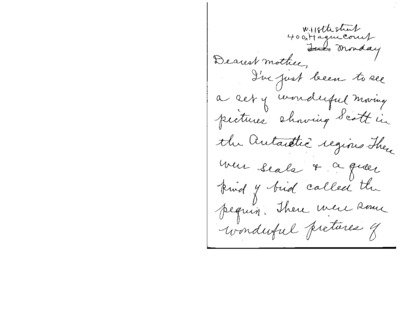 W 118th street
400 Hague Court
Monday
Dearest mother,
I've just been to see
a set of wonderful moving
pictures showing Scott in
the Antarctic regions There
were seals & a queer
kind of bird called the
penguin. There were some
wonderful pictures of